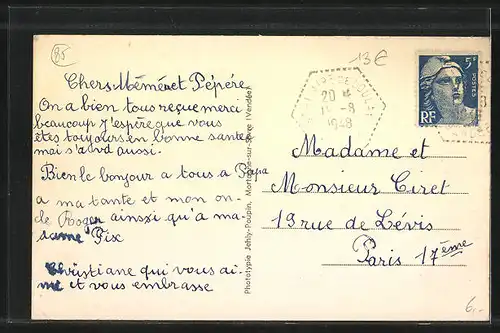 85
13 €
Chers Mémé et Pépére
On a bien tous reçue merci
beaucoup j'espère que vous
êtes toujours en bonne sante
moi sa va aussi.
Bien le bonjour a tous a Papa
a ma tante et mon on-
cle Roger ainssi qu'a ma-
dame Pix
Christiane qui vous ai-
me et vous embrasse
Phototypie Jehly-Poupin, Mortagne-sur-Sèvre (Vendée)
20
-8
1948
5F
RF
Madame et
Monsieur Ciret
19 rue de Lévis
Paris 17ème
6.-